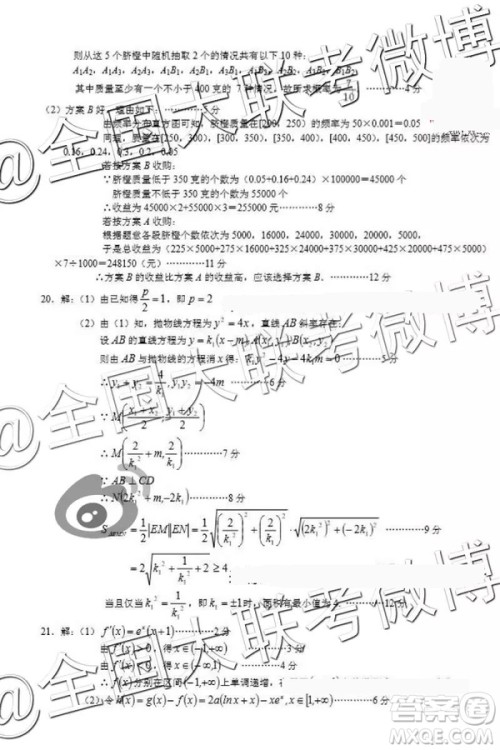 则从这5个脐橙中随机抽取2个的情况共有以下10种:
A₁A₂, A₁A₃, A₂A₃, A₁B₁, A₂B₁, A₃B₁, A₁B₂, A₂B₂, A₃B₂, B₁B₂
其中质量至少有一个不小于400克的7种情况, 故所求概率为7/10. …………4分
(2) 方案B好, 理由如下:
由频率分布直方图可知, 脐橙质量在[200, 250)的频率为50×0.001=0.05
同理, 质量在[250, 300), [300, 350), [350, 400), [400, 450), [450, 500]的频率依次为
0.16, 0.24, 0.3, 0.2, 0.05
若按方案B收购:
∵脐橙质量低于350克的个数为(0.05+0.16+0.24)×100000=45000个
脐橙质量不低于350克的个数为55000个
∴收益为45000×2+55000×3=255000元…………8分
若按方案A收购:
根据题意各段脐橙个数依次为5000, 16000, 24000, 30000, 20000, 5000
于是总收益为(225×5000+275×16000+325×24000+375×30000+425×20000+475×5000)
×7÷1000=248150(元)…………11分
∴方案B的收益比方案A的收益高, 应该选择方案B. …………12分
20. 解: (1) 由已知得p/2=1, 即p=2
(2) 由(1)知, 抛物线方程为y²=4x, 直线AB斜率存在:
设AB的直线方程为y=k₁(x−m), A(x₁,y₁), B(x₂,y₂)
则由AB与抛物线的方程消x得: k₁y²−4y−4k₁m=0 …………5分
∴y₁+y₂=4/k₁, y₁y₂=−4m …………6分
∵M((x₁+x₂)/2, (y₁+y₂)/2)
∴M(2/k₁²+m, 2/k₁)…………7分
∵AB⊥CD
∴N(2k₁²+m,−2k₁)…………8分
=½|EM||EN|=½√((2/k₁²)²+(2/k₁)²)·√((2k₁²)²+(−2k₁)²) …………9分
=2√(k₁²+1/k₁²+2)≥4.
当且仅当k₁²=1/k₁², 即k₁=±1时, 面积有最小值为4.
21. 解: (1) f′(x)=eˣ(x+1)…………2分
由f′(x)>0, 得x∈(−1,+∞) …………3分
由f′(x)<0, 得x∈(−∞,1) …………4分
∴f(x)分别在区间(−1,+∞)上单调递增,
(2) 令h(x)=g(x)−f(x)=2a(lnx+x)−xeˣ, x∈[1,+∞)…………6分
@全国大联考微博
@全国大联考微博
@全国大联考微博
答案圈
MXQE.COM